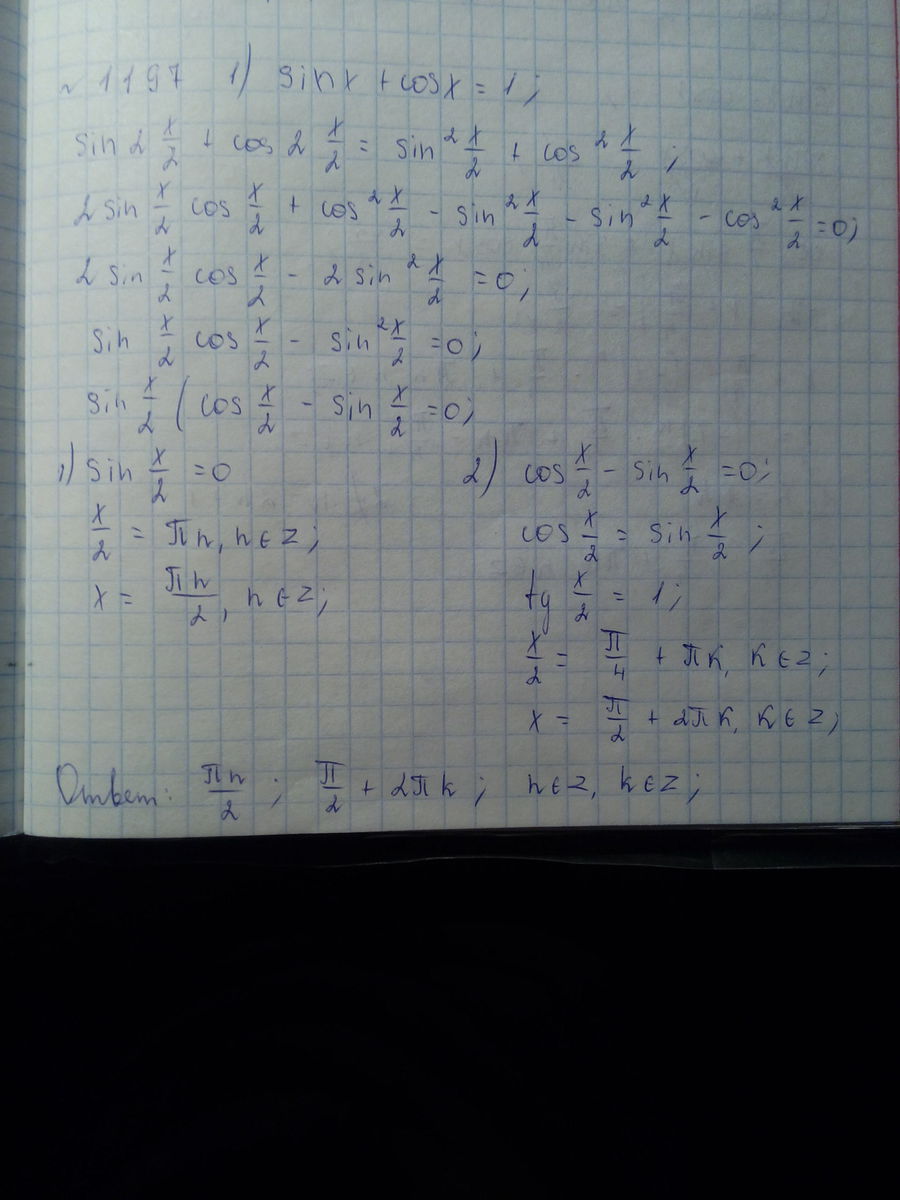 № 1197 1) sin x + cos x = 1;
sin 2 x/2 + cos 2 x/2 = sin² x/2 + cos² x/2;
2 sin x/2 cos x/2 + cos² x/2 - sin² x/2 - sin² x/2 - cos² x/2 = 0;
2 sin x/2 cos x/2 - 2 sin² x/2 = 0;
sin x/2 cos x/2 - sin² x/2 = 0;
sin x/2 (cos x/2 - sin x/2 = 0;
1) sin x/2 = 0
x/2 = πn, n∈z;
x = πn/2, n∈z;
2) cos x/2 - sin x/2 = 0;
cos x/2 = sin x/2;
tg x/2 = 1;
x/2 = π/4 + πk, k∈z;
x = π/2 + 2πk, k∈z;
Ответ: πn/2; π/2 + 2πk; n∈z, k∈z;